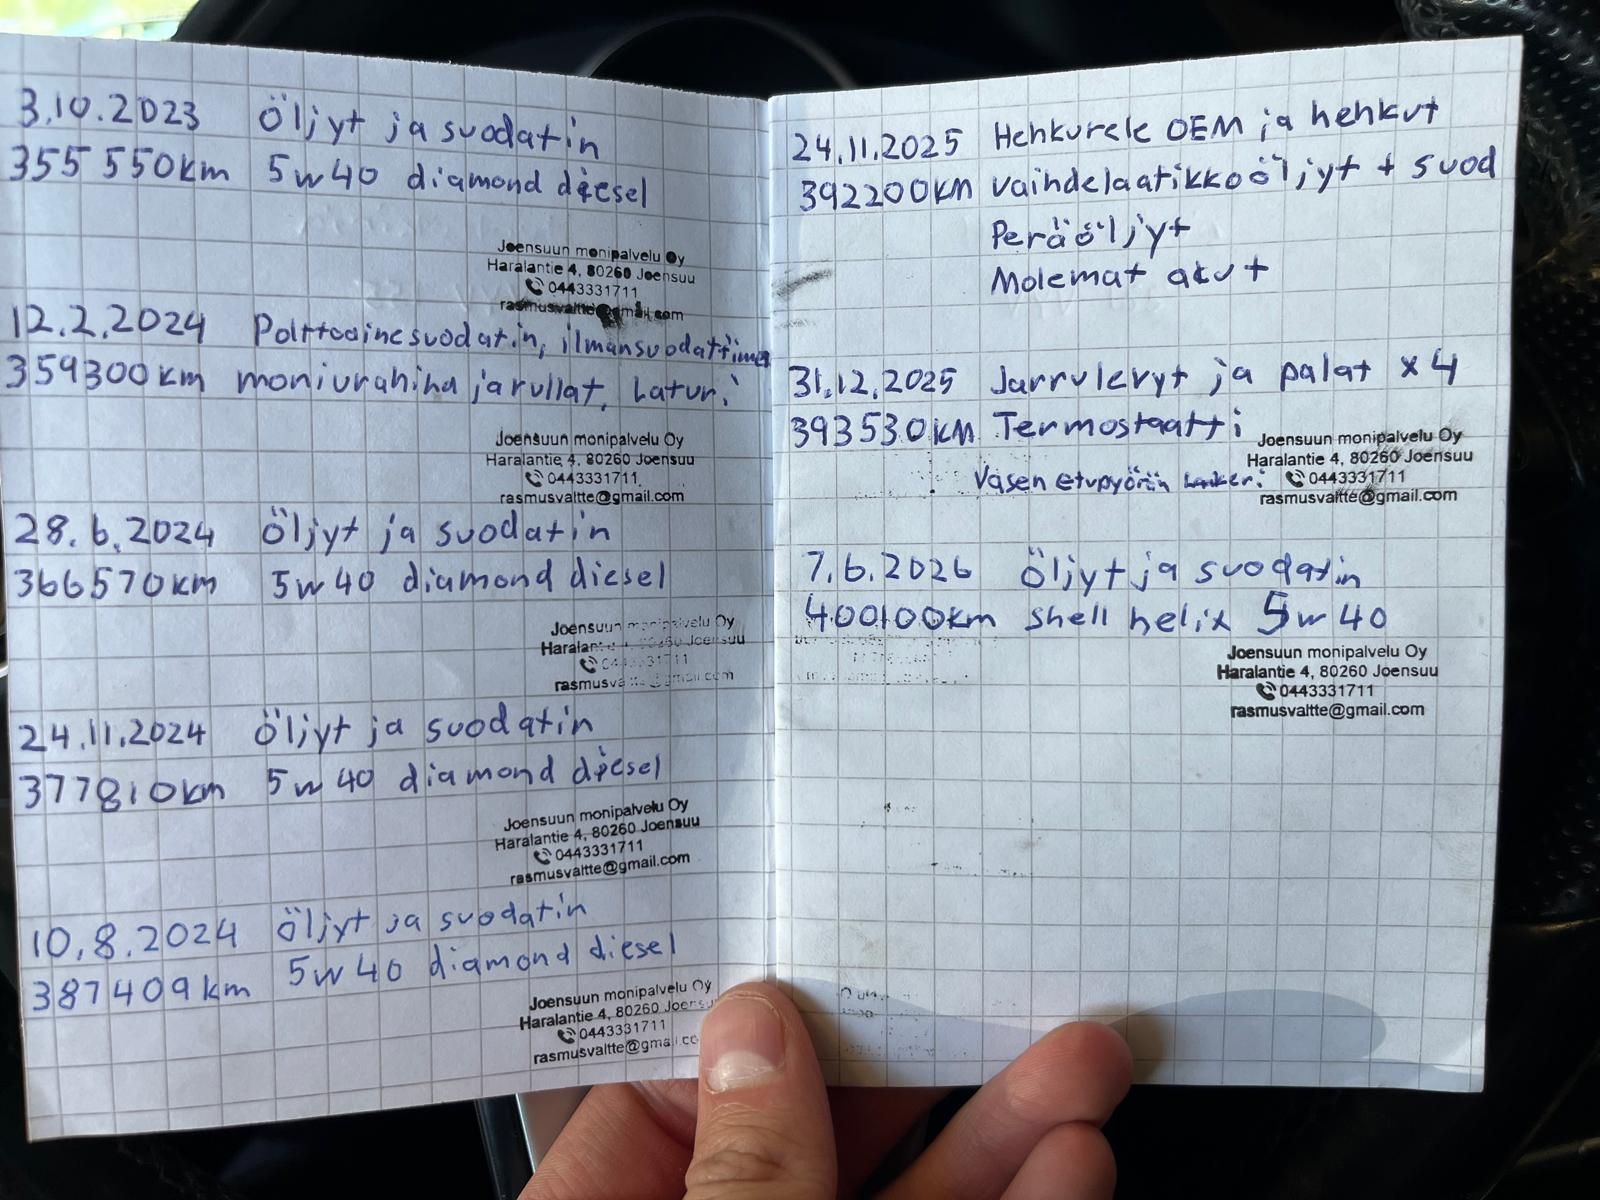 3.10.2023 öljyt ja suodatin
355 550km 5w40 diamond diesel
Joensuun monipalvelu Oy
Haralantie 4, 80260 Joensuu
0443331711
rasmusvaltte@gmail.com
12.2.2024 Polttoainesuodatin, ilmansuodattimet
359300km moniurahihna ja rullat, Laturi
Joensuun monipalvelu Oy
Haralantie 4, 80260 Joensuu
0443331711
rasmusvaltte@gmail.com
28.6.2024 öljyt ja suodatin
366570km 5w40 diamond diesel
Joensuun monipalvelu Oy
Haralantie 4, 80260 Joensuu
0443331711
rasmusvaltte@gmail.com
24.11.2024 öljyt ja suodatin
377810km 5w40 diamond diesel
Joensuun monipalvelu Oy
Haralantie 4, 80260 Joensuu
0443331711
rasmusvaltte@gmail.com
10.8.2024 öljyt ja suodatin
387409km 5w40 diamond diesel
Joensuun monipalvelu Oy
Haralantie 4, 80260 Joensuu
0443331711
rasmusvaltte@gmail.co
24.11.2025 Hehkurele OEM ja hehkut
392200km vaihdelaatikkoöljyt + suod
Peräöljyt
Molemat akut
31.12.2025 Jarrulevyt ja palat x4
393530km Termostaatti
Vasen etupyörän laakeri
Joensuun monipalvelu Oy
Haralantie 4, 80260 Joensuu
0443331711
rasmusvaltte@gmail.com
7.6.2026 öljyt ja suodatin
400100km shell helix 5w40
Joensuun monipalvelu Oy
Haralantie 4, 80260 Joensuu
0443331711
rasmusvaltte@gmail.com